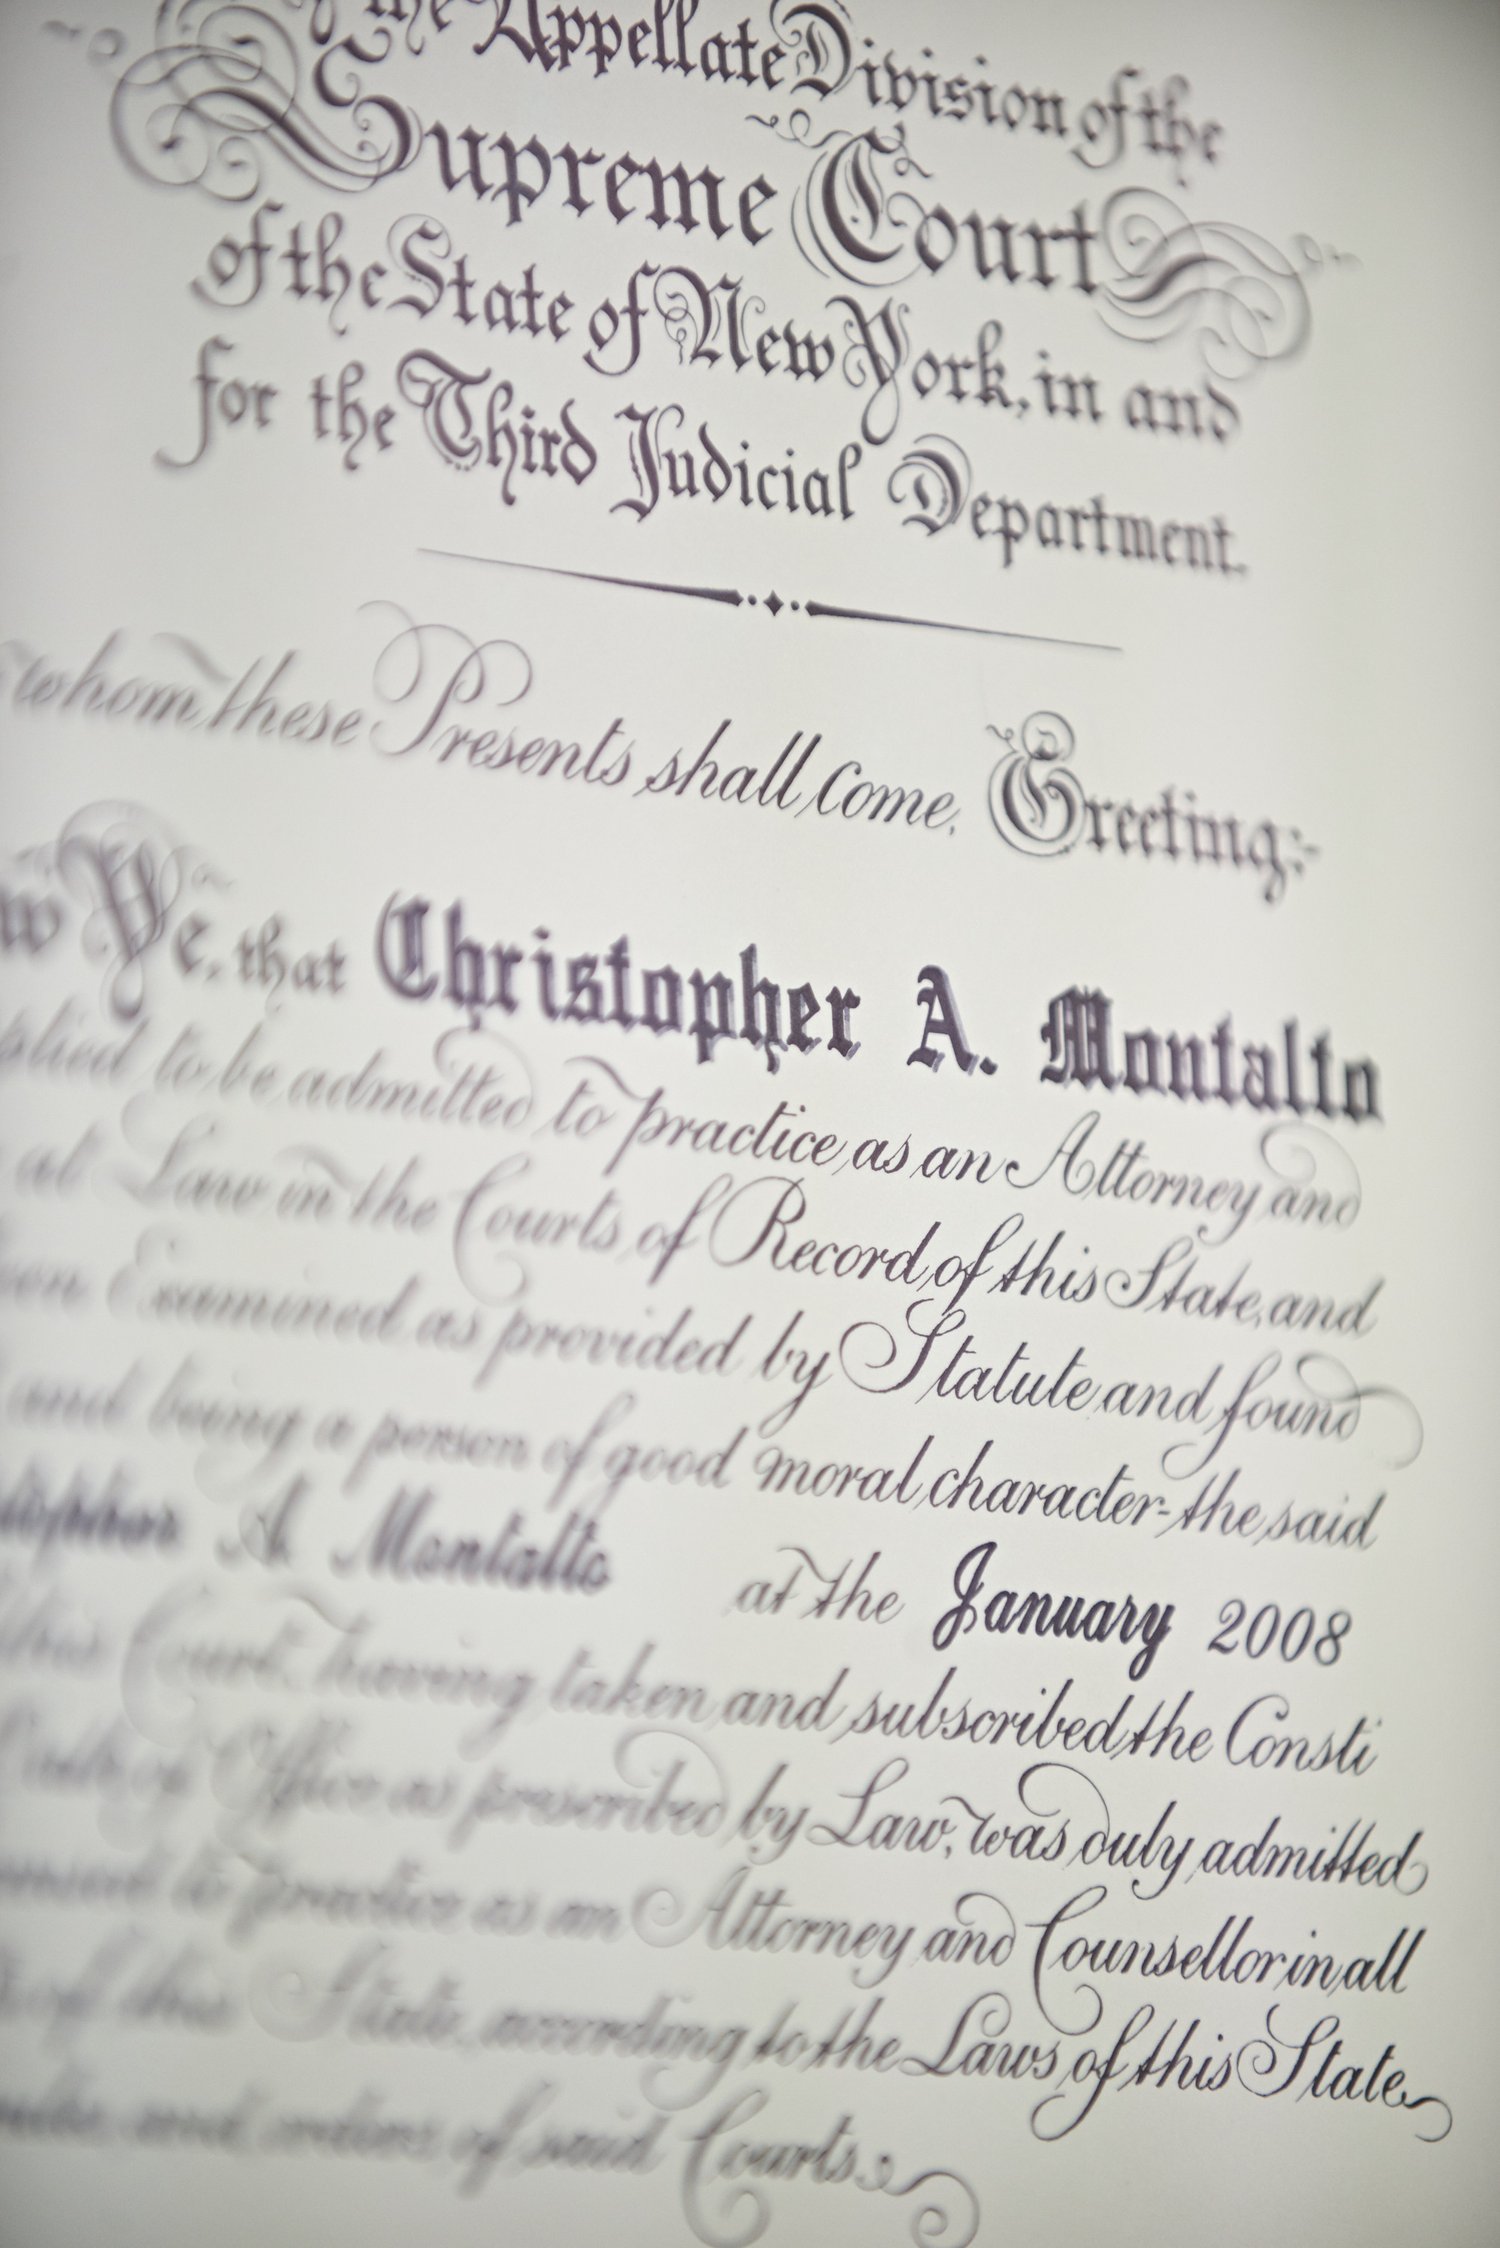 the Appellate Division of the
Supreme Court
of the State of New York, in and
for the Third Judicial Department.
whom these Presents shall come, Greeting:-
Ye, that Christopher A. Montalto
to be admitted to practice as an Attorney and
at Law in the Courts of Record of this State, and
Examined as provided by Statute and found
and being a person of good moral character-the said
A. Montalto at the January 2008
this Court, having taken and subscribed the Consti
Oath of Office as prescribed by Law, was duly admitted
to practice as an Attorney and Counsellor in all
of this State, according to the Laws of this State
and orders of said Courts.